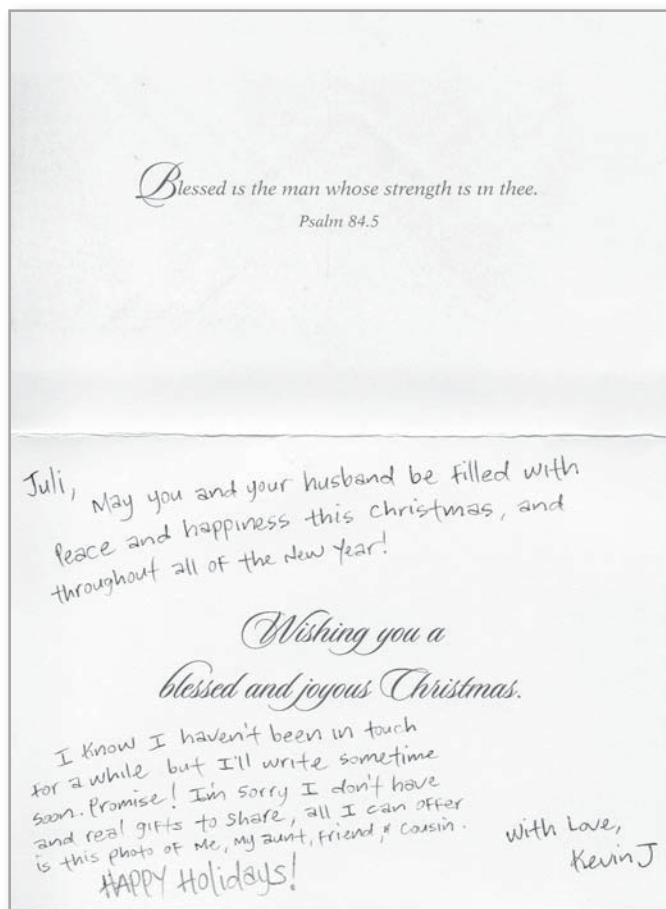 Blessed is the man whose strength is in thee.
Psalm 84.5
Juli, May you and your husband be filled with
Peace and happiness this Christmas, and
throughout all of the New Year!
Wishing you a
blessed and joyous Christmas.
I know I haven't been in touch
for a while but I'll write sometime
soon. Promise! I'm sorry I don't have
and real gifts to share, all I can offer
is this photo of Me, My aunt, friend, & Cousin.
HAPPY Holidays!
With Love,
Kevin J